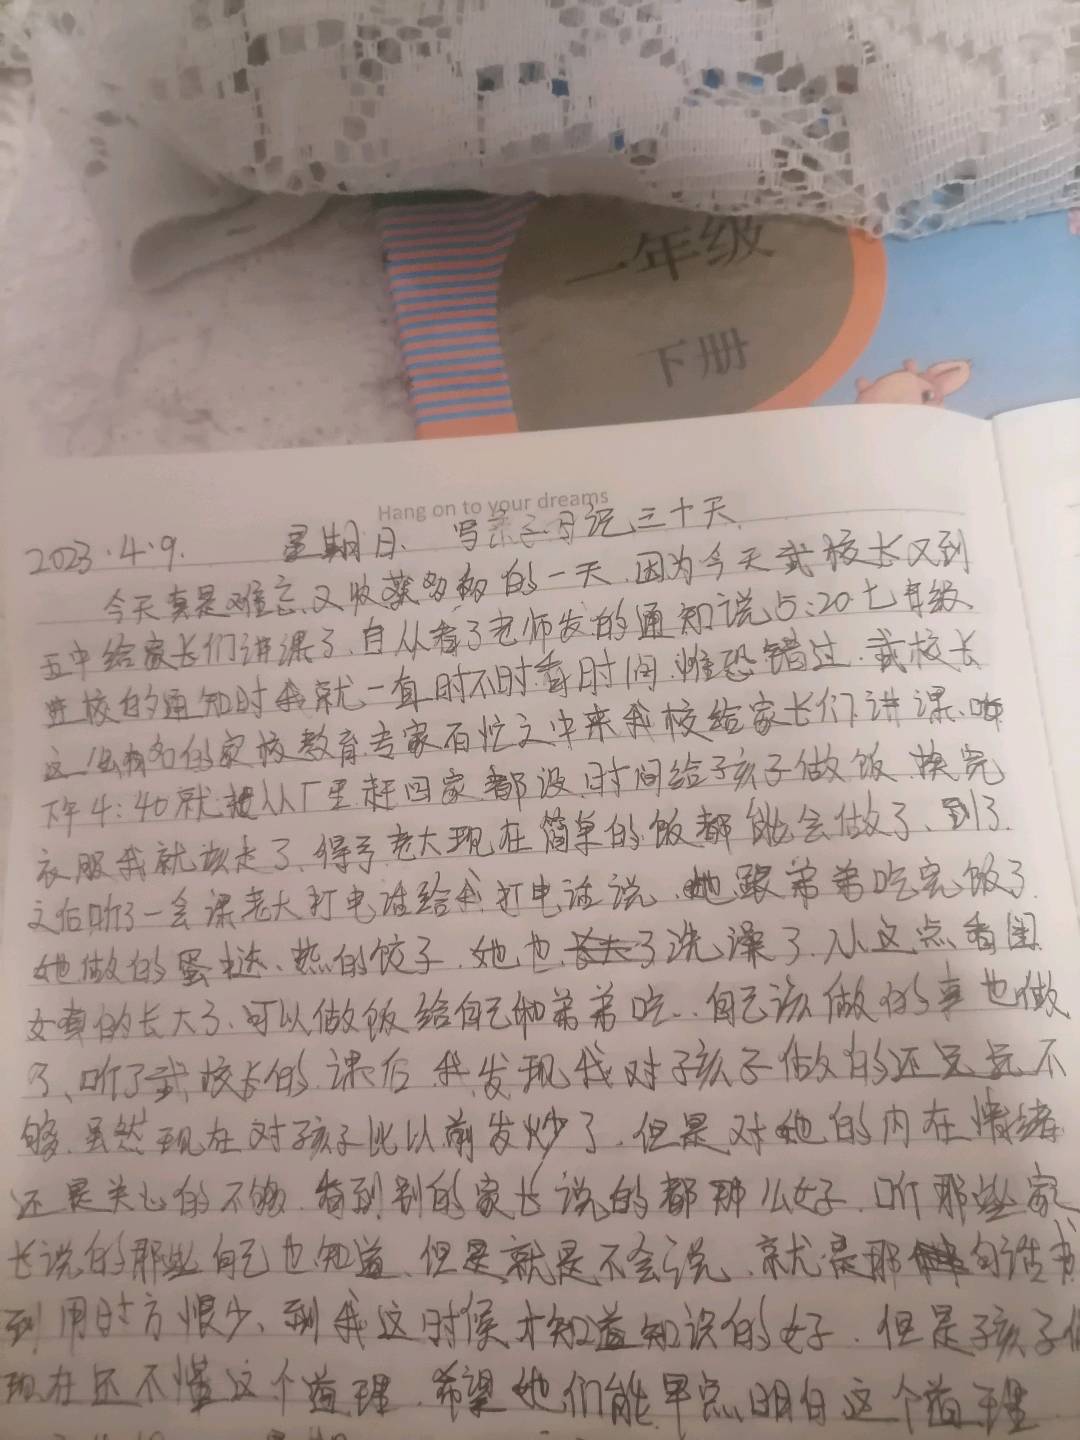 一年级
下册
Hang on to your dreams
2023.4.9. 星期日. 写亲子日记三十天
今天真是难忘又收获多多的一天.因为今天武校长又到
五中给家长们讲课了.自从看了老师发的通知说5:20七年级
进校的通知时我就一直时不时看时间.惟恐错过.武校长
这么有名的家校教育专家百忙之中来我校给家长们讲课.
下午4:40就 从厂里赶回家都没时间给孩子做饭.换完
衣服我就该走了.得亏老大现在简单的饭都能会做了.到了
之后听了一会课老大打电话给我打电话说.她跟弟弟吃完饭了.
她做的蛋 、热的饺子.她也 了洗澡了.从这点看闺
女真的长大了.可以做饭给自己和弟弟吃..自己该做的事也做
了.听了武校长的课后.我发现我对孩子做的还远远不
够.虽然现在对孩子比以前发炒了.但是对她的内在情绪
还是关心的不够.看到别的家长说的都那么好.听那些家
长说的那些自己也知道.但是就是不会说.就是那 句话书
到用时方恨少.到我这时候才知道知识的好.但是孩子们
现在还不懂这个道理.希望她们能早点明白这个道理